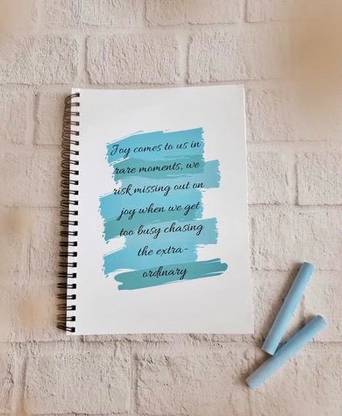 Joy comes to us in
rare moments, we
risk missing out on
joy when we get
too busy chasing
the extra-
ordinary